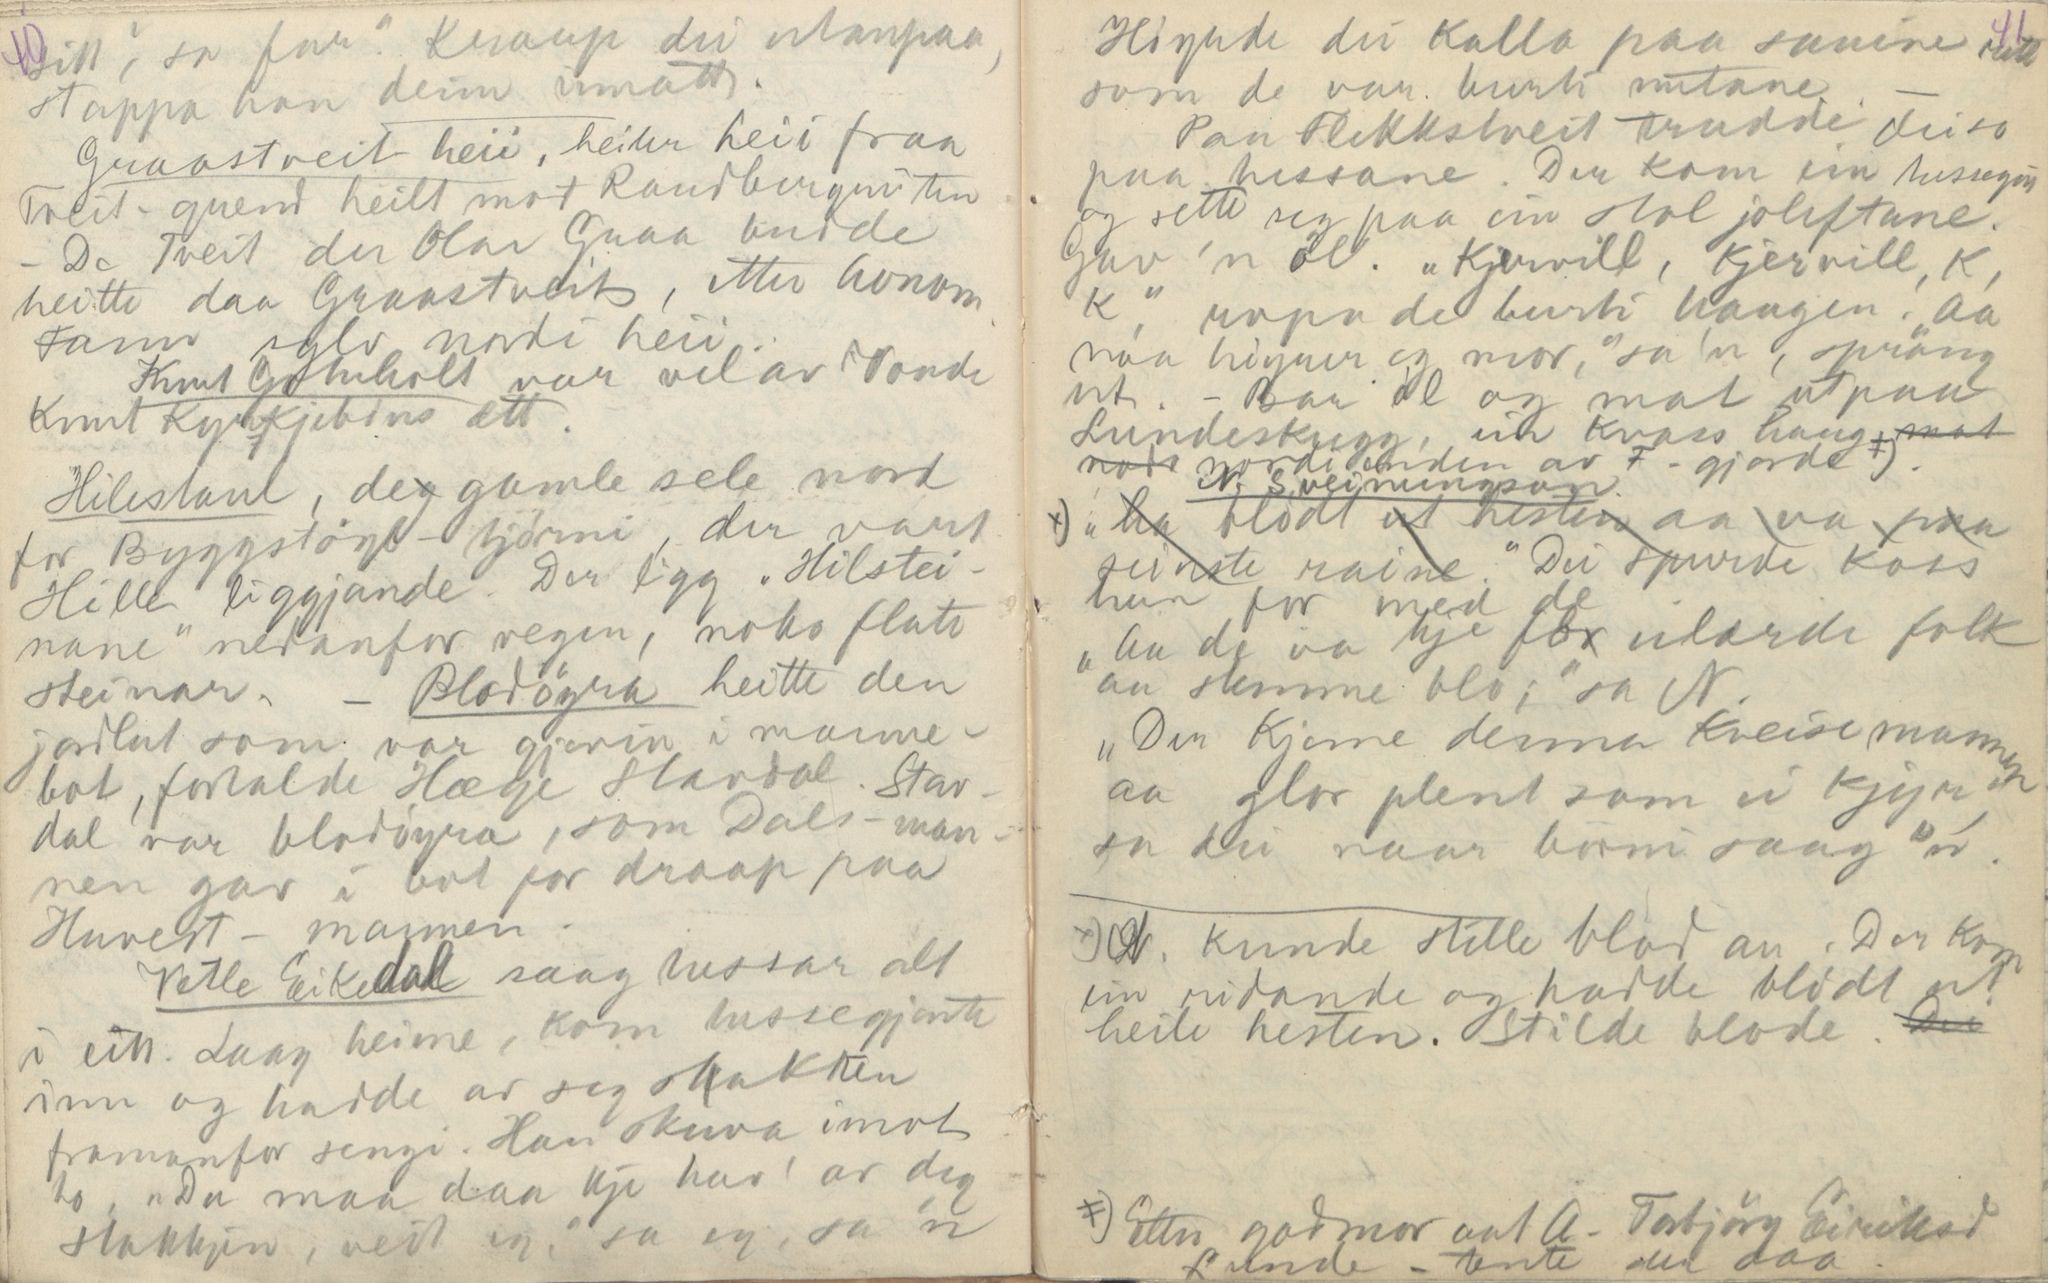 40
sitt", sa far". Knaup dei utanpaa,
stappa han deim imatt.
Graastveit heii, heiter heii fraa
Tveit-grend heilt mot Raudbergnuten
- De Tveit der Olav Graa budde
heitte daa Graastveit, etter honom
sylv nordi heii.
Knut var vel av Vonde
Knut Kyrkjebøns ætt.
"Hilestaul, de gamle sele nord
for Byggstøyl-tjørni, der vart
Hille liggjande. Der ligg "Hilstei-
nane" nedanfor vegen, noko flate
steinar. - Blodøyra heitte den
jordlut som var gjevin i manne-
bot, fortalde Hæge Stavdal. Stav-
dal var blodøyra, som Dals-man-
nen gav i bot for draap paa
Huvest-mannen.
Vetle Eikedal saag tussar alt
i eitt. Laag heime, kom tussegjenta
inn og hadde av seg stakken
framanfor sengi. Han skuva imot
ho. "Du maa daa kje hav' av deg
stakkjen, veit eg," sa eg, sa 'n
41
Høyrde dei kalla paa sauine
som de var burti nutane. -
Paa Flekkstveit trudde dei so
paa tussane. Der kom ein
og sette seg paa ein stol joleftane.
Gav 'n øl. "Kjervill, Kjervill, K,
K," ropa de burti haugen. "Aa
naa høyrer eg mor," sa 'n, sprang
ut. - Bar øl og mat utpaa
Lundeskugg, ein kvass haug mat
nordi enden av F-gjorde ).
N. Sveinungson.
x) "Ha blødt ut hesten aa va paa
seinste raine." Dei spurde koss
han for med de
"Aa de va kje for ulærde folk
aa stemme blo," sa N.
"Der kjeme denna kreisemannen
aa glor plent som ei kjyr"
sa dei naar børni saag 'n.
x) N. kunde stille blod au. Der kom
ein ridande og hadde blødt ut
heile hesten. Stilde blode. Dei
) Etter godmor aat A - Torbjørg Eiriksd
Lunde - tente der daa.